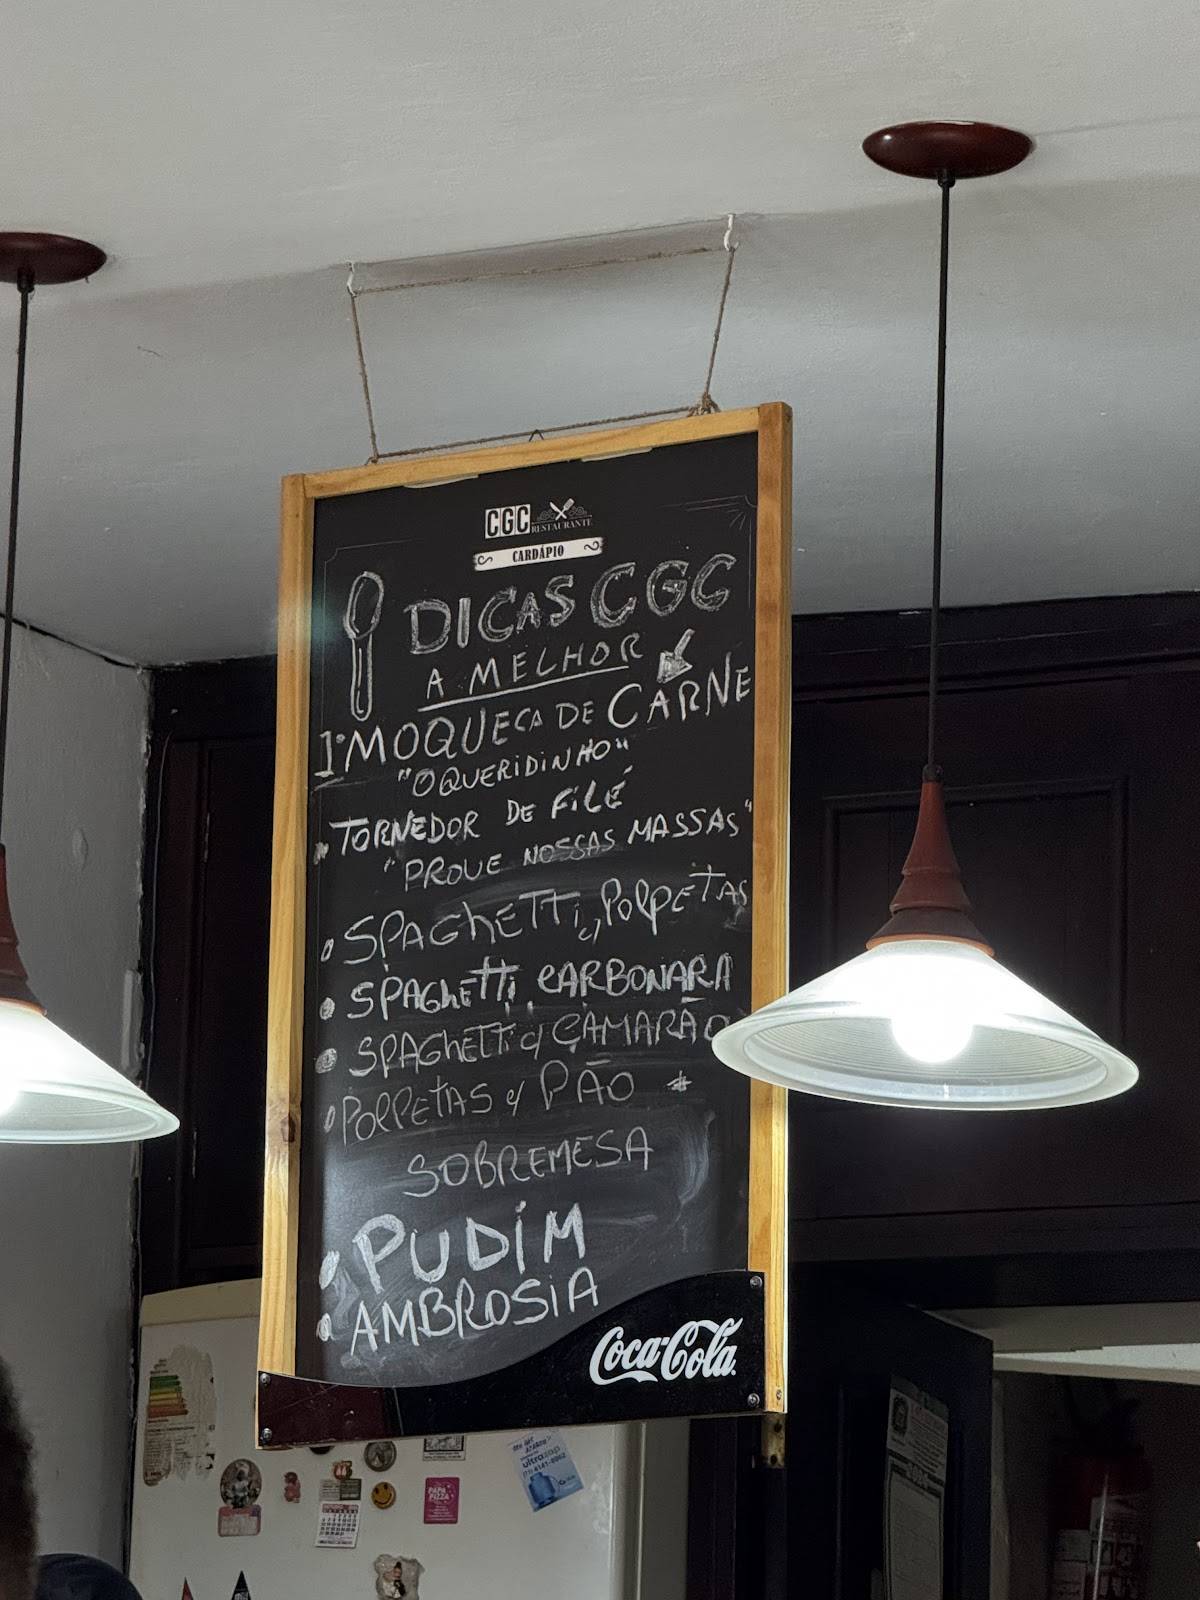 CGC RESTAURANTE
CARDÁPIO
DICAS CGC
A MELHOR
1º MOQUECA DE CARNE
"O QUERIDINHO"
TORNEDOR DE FILÉ
"PROVE NOSSAS MASSAS"
SPAGHETTI c/ POLPETAS
SPAGHETTI CARBONARA
SPAGHETTI c/ CAMARÃO
POLPETAS c/ PÃO
SOBREMESA
PUDIM
AMBROSIA
Coca-Cola
ultragaz
PAPA PIZZA